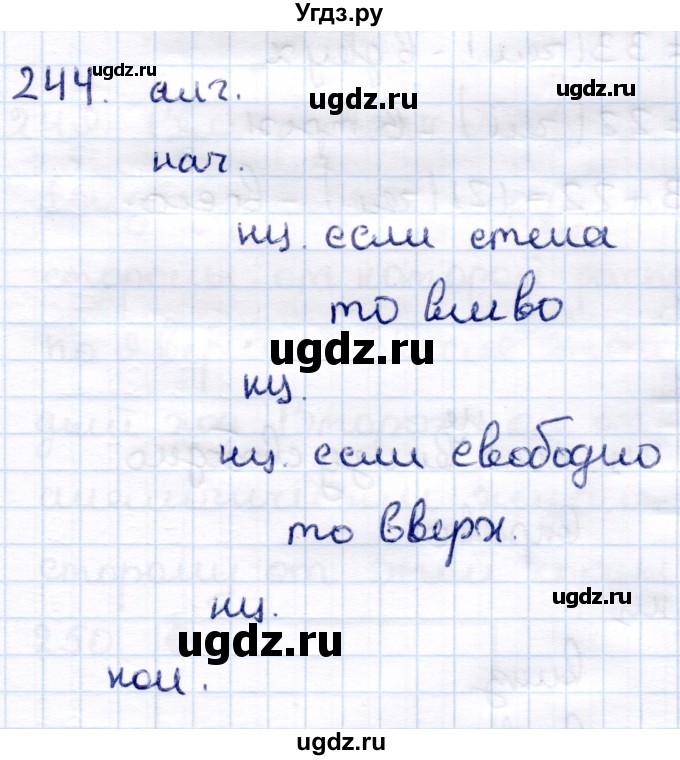 Угдз.ру
244. алг.
нач.
нц. если стена
то влево
нц.
нц. если свободно
то вверх.
нц.
кон.
ugdz.ru
ugdz.ru
ugdz.ru
ugdz.ru
ugdz.ru
ugdz.ru
ugdz.ru